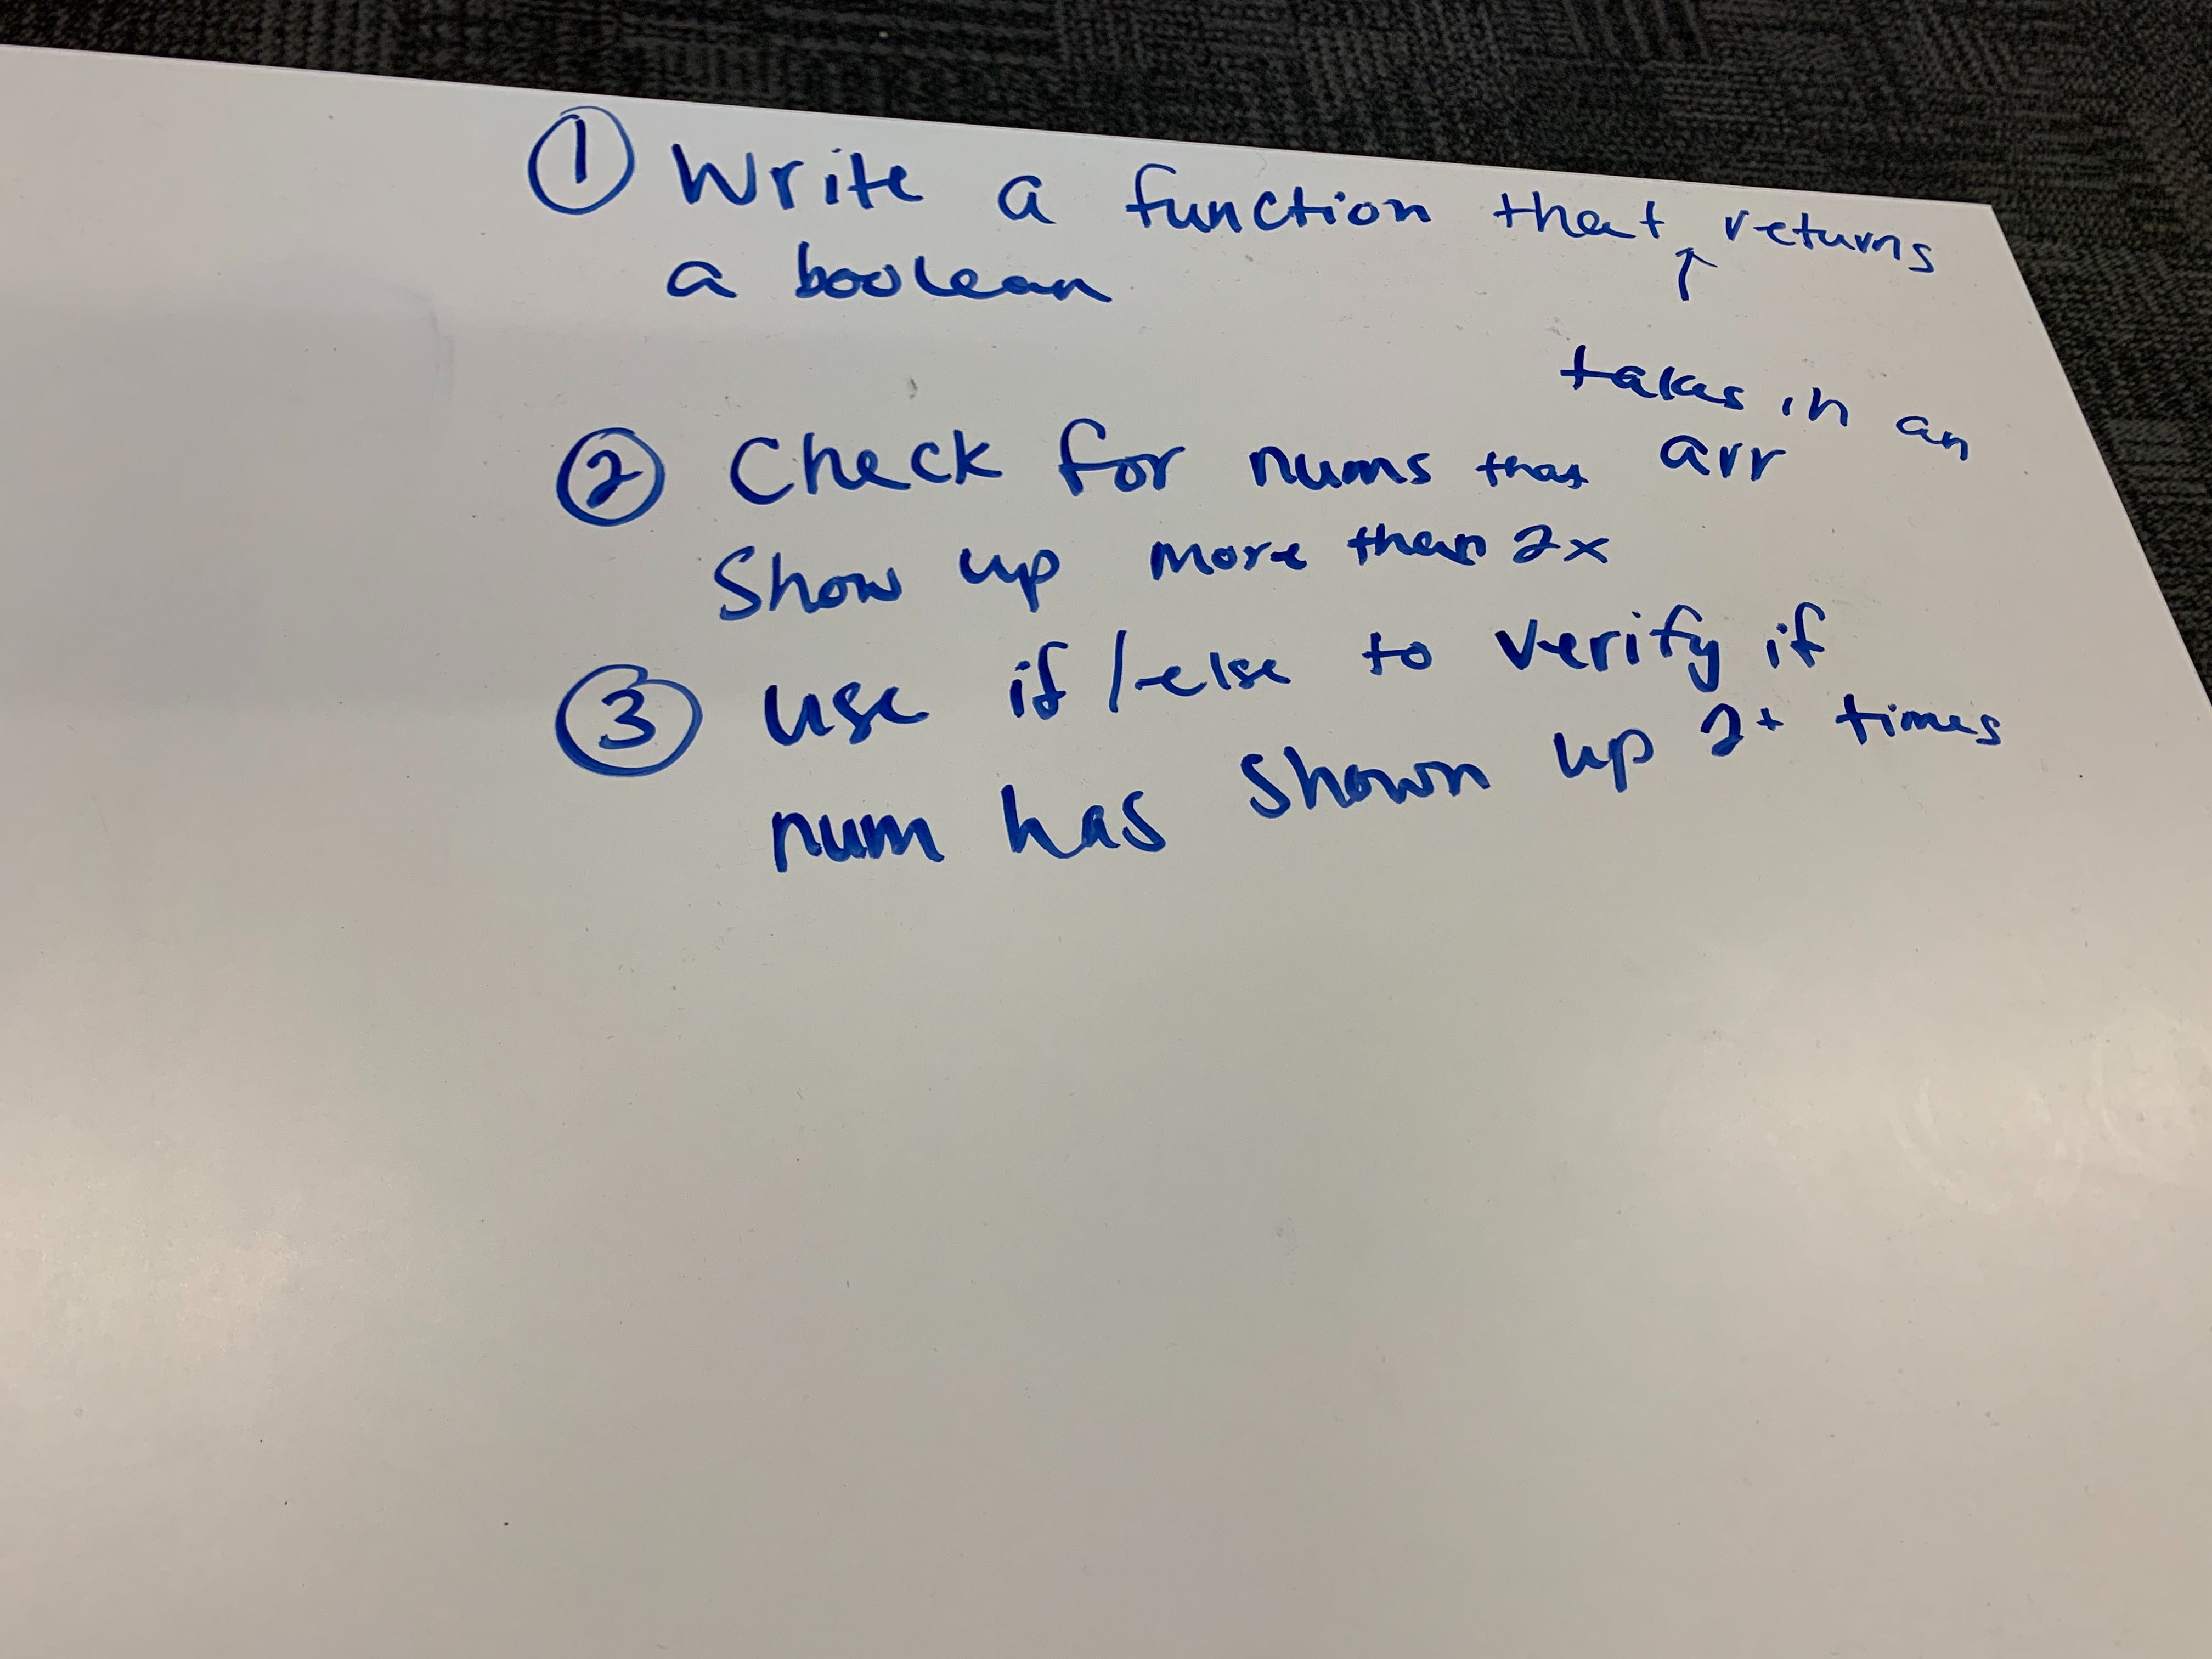 ① Write a function that ↑ returns
a boolean
takes in an
arr
② Check for nums that
Show up more than 2x
③ use if/else to verify if
num has shown up 2+ times